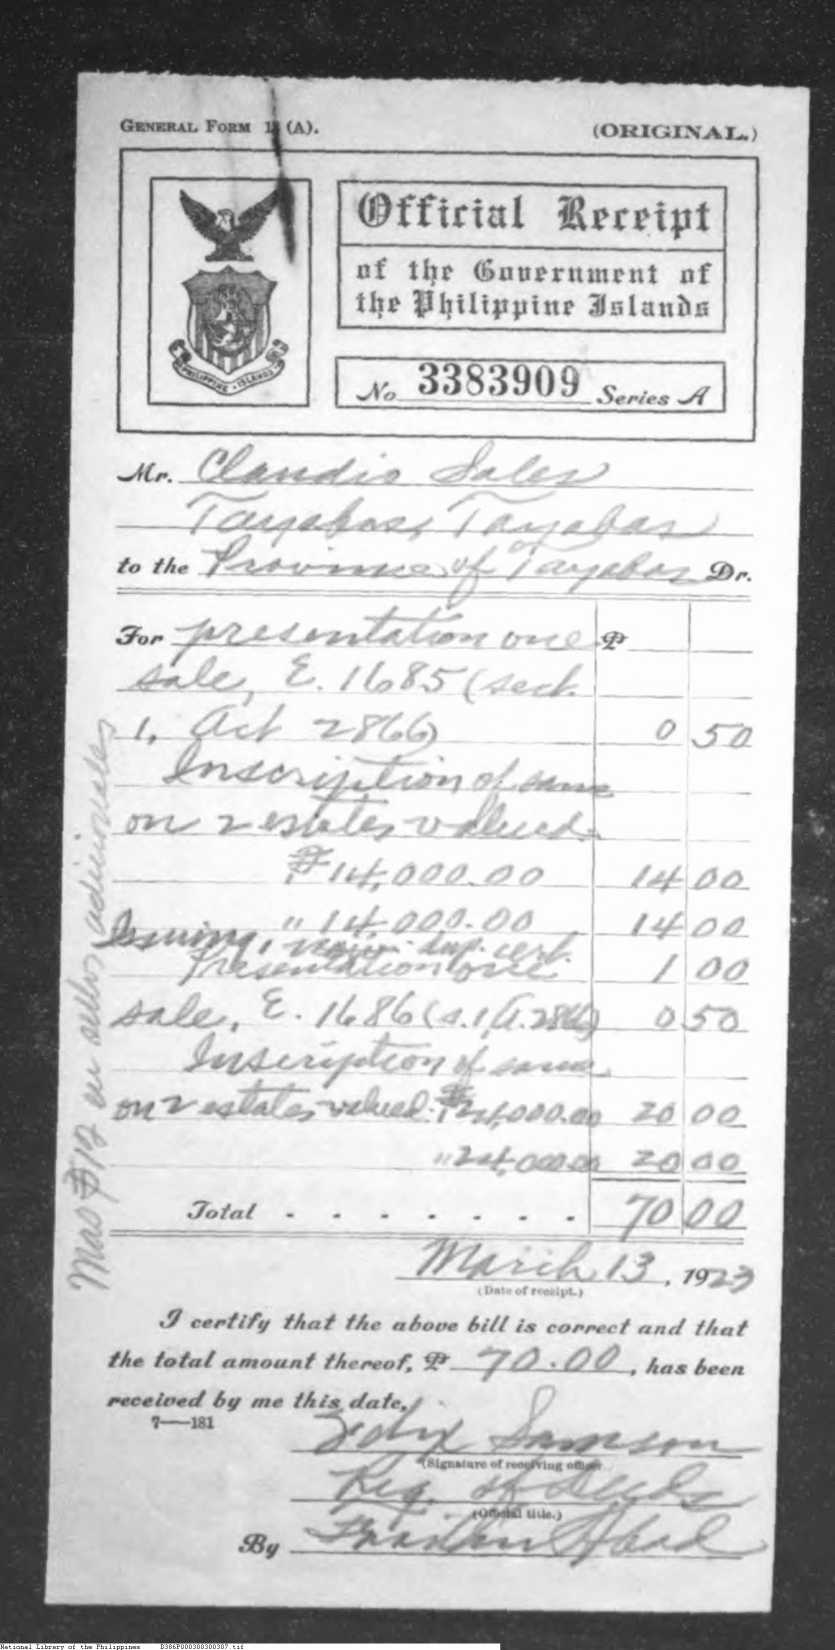 GENERAL FORM 1 (A).
(ORIGINAL.)
Official Receipt
of the Government of
the Philippine Islands
PHILIPPINE ISLANDS
No 3383909 Series A
Mr. Claudio Sales
Tayabas, Tayabas
to the Province of Tayabas Dr.
For presentation one ₱
sale, E. 1685 (sect.
1, Act 2866) 0 50
Inscription of same
on 2 estates valued
₱14,000.00 14 00
" 14,000.00 14 00
Issuing, dup. cert. 1 00
Presentation one
sale, E. 1686 (s.1, A.2866) 0 50
Inscription of same
on 2 estates valued ₱24,000.00 20 00
"24,000.00 20 00
Total - - - - - - - 70 00
Mas ₱12 en sellos adicionales
March 13, 1923
(Date of receipt.)
I certify that the above bill is correct and that
the total amount thereof, ₱ 70.00, has been
received by me this date.
7—181
Samson
(Signature of receiving officer
Reg. of Deeds
(Official title.)
By Abad
National Library of the Philippines D386P000300300307.tif